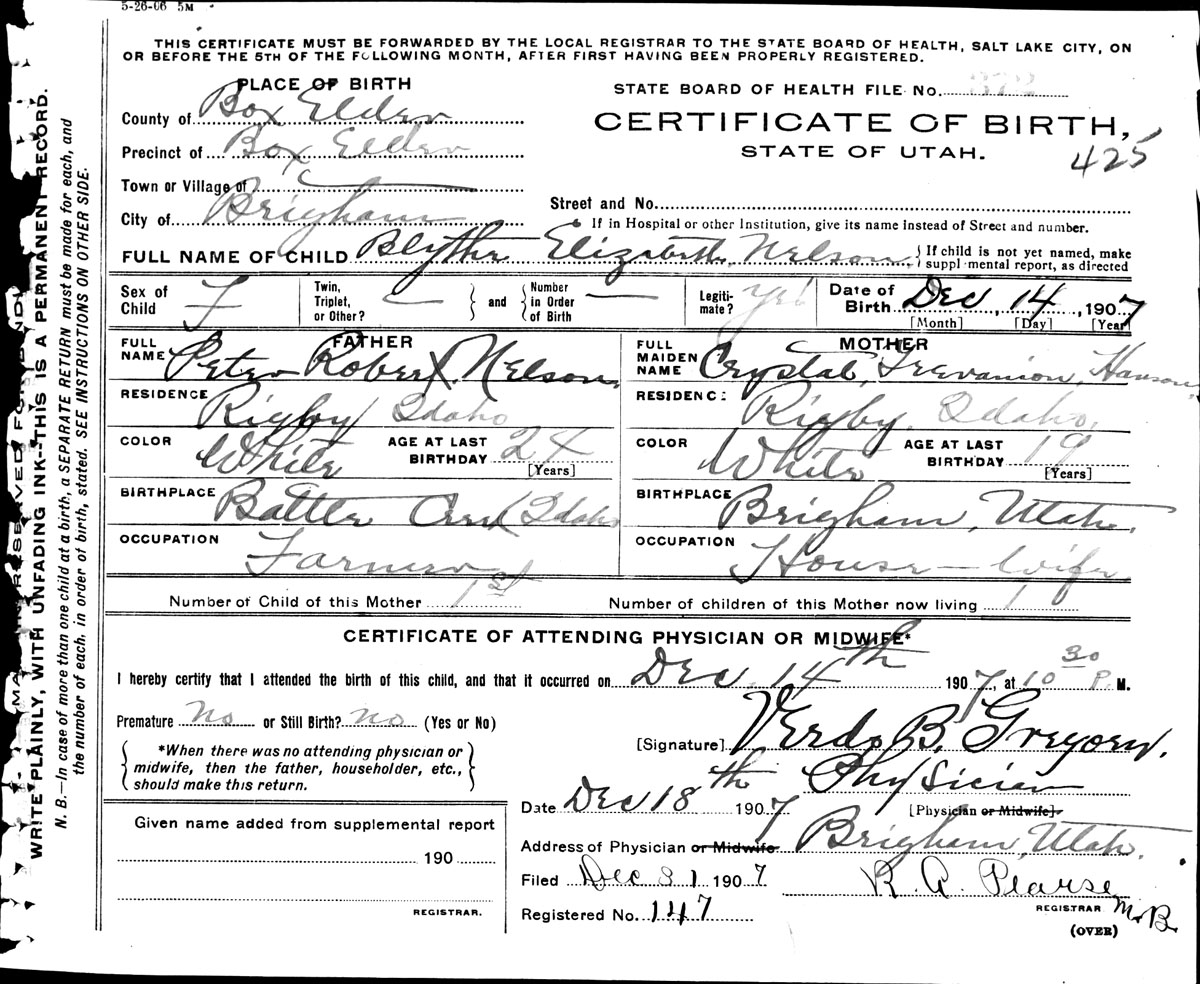 5-26-06 5M
THIS CERTIFICATE MUST BE FORWARDED BY THE LOCAL REGISTRAR TO THE STATE BOARD OF HEALTH, SALT LAKE CITY, ON
OR BEFORE THE 5TH OF THE FOLLOWING MONTH, AFTER FIRST HAVING BEEN PROPERLY REGISTERED.
WRITE PLAINLY, WITH UNFADING INK—THIS IS A PERMANENT RECORD.
N. B.—In case of more than one child at a birth, a SEPARATE RETURN must be made for each, and
the number of each, in order of birth, stated. SEE INSTRUCTIONS ON OTHER SIDE.
PLACE OF BIRTH
County of Box Elder
Precinct of Box Elder
Town or Village of
City of Brigham
STATE BOARD OF HEALTH FILE No. 372
CERTIFICATE OF BIRTH,
STATE OF UTAH.
425
Street and No.
If in Hospital or other Institution, give its name instead of Street and number.
FULL NAME OF CHILD Blythe Elizabeth Nelson { If child is not yet named, make
suppl mental report, as directed
Sex of Child F
Twin, Triplet, or Other? — } and { Number in Order of Birth —
Legiti-mate? yes
Date of Birth Dec, 14, 1907
[Month] [Day] [Year]
FATHER
FULL NAME Peter Robert Nelson
RESIDENCE Rigby Idaho
COLOR White AGE AT LAST BIRTHDAY 24
[Years]
BIRTHPLACE Battle Creek Idaho
OCCUPATION Farmer
MOTHER
FULL MAIDEN NAME Crystal Trevanion, Hanson
RESIDENC: Rigby, Idaho,
COLOR White AGE AT LAST BIRTHDAY 19
[Years]
BIRTHPLACE Brigham, Utah.
OCCUPATION House-wife
Number of Child of this Mother 1st Number of children of this Mother now living 1
CERTIFICATE OF ATTENDING PHYSICIAN OR MIDWIFE*
I hereby certify that I attended the birth of this child, and that it occurred on Dec. 14th 1907, at 10 30 P. M.
Premature No or Still Birth? No (Yes or No)
*When there was no attending physician or
midwife, then the father, householder, etc.,
should make this return.
[Signature] Verdo B. Gregory.
Physician
[Physician or Midwife]
Date Dec 18th 1907
Address of Physician or Midwife Brigham, Utah.
Given name added from supplemental report
190
REGISTRAR.
Filed Dec 31 1907 R. A. Pearse
REGISTRAR M.B.
Registered No. 147
(OVER)